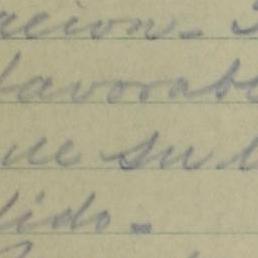 acion.-
favorab
ue su
dido.-